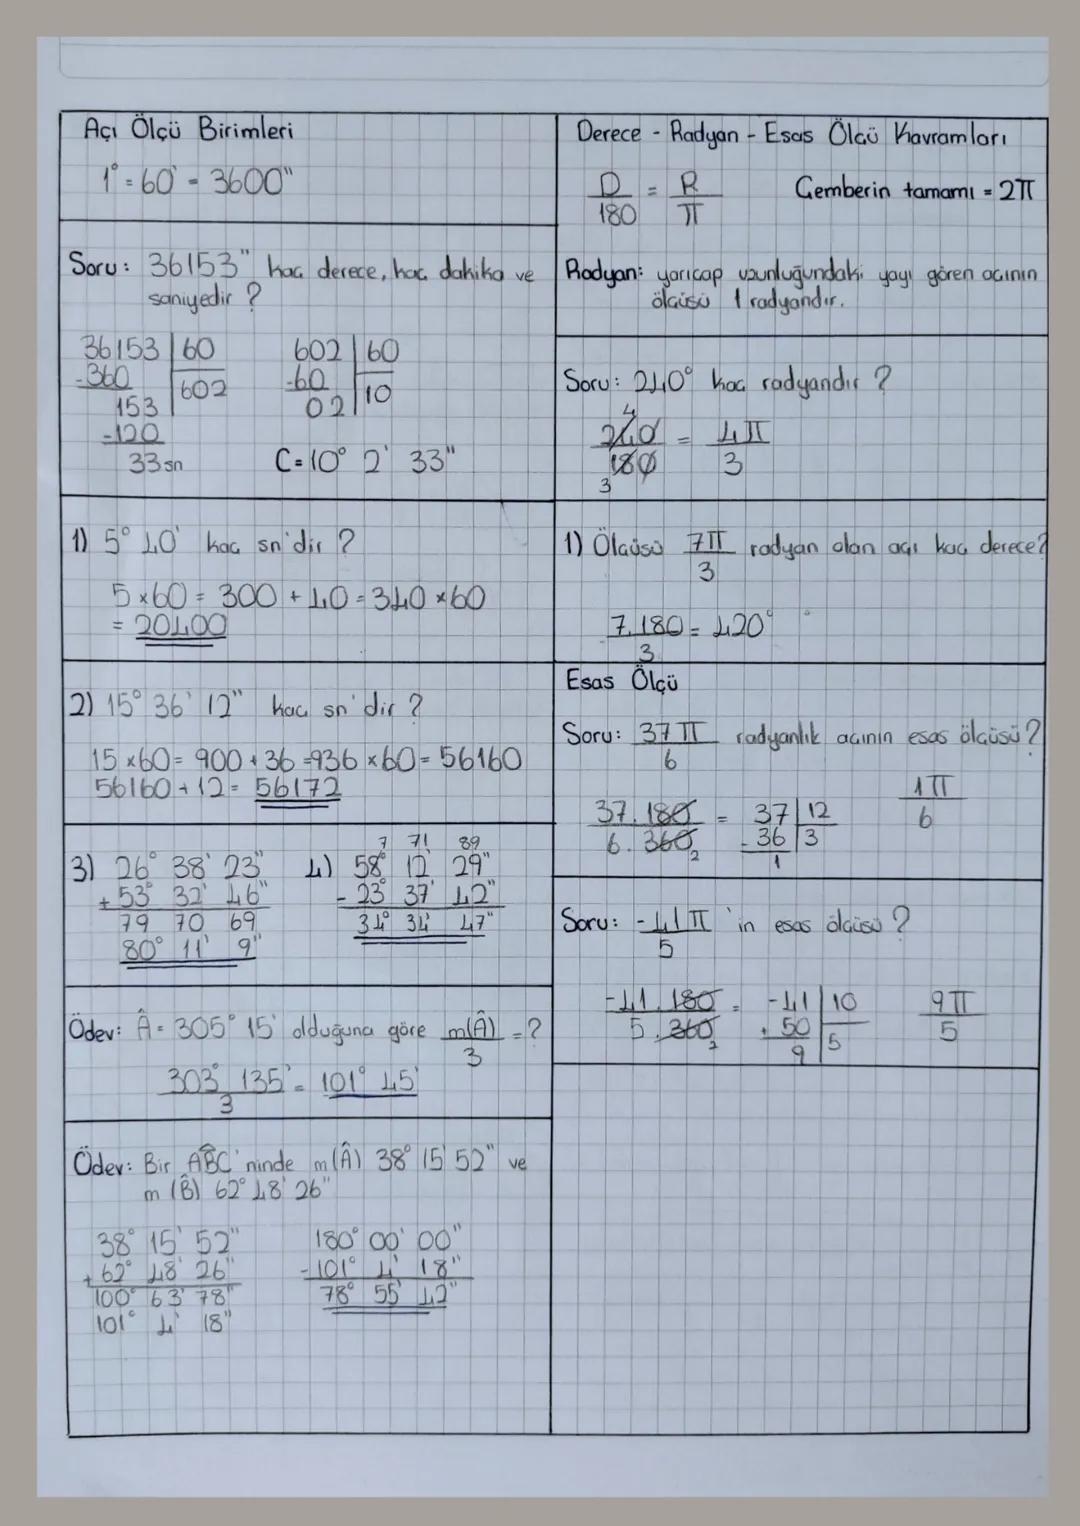 Açı Ölçü Birimleri
1° = 60' = 3600"
Soru: 36153" kaç derece, kaç dakika ve
saniyedir ?
36153 | 60
-360 | 602
153
-120
33 sn
602 | 60
-60 | 10
02
C = 10° 2' 33"
1) 5° 40' kaç sn'dir ?
5 x 60 = 300 + 40 = 340 x 60
= 20400
2) 15° 36' 12" kaç sn'dir ?
15 x 60 = 900 + 36 = 936 x 60 = 56160
56160 + 12 = 56172
3) 26° 38' 23"
+ 53° 32' 46"
79 70 69
80° 11' 9"
7 71 89
4) 58° 12' 29"
- 23° 37' 42"
34° 34' 47"
Ödev: Â = 305° 15' olduğuna göre m(Â) = ?
3
303° 135' = 101° 45'
3
Ödev: Bir ABC'ninde m(Â) 38° 15' 52" ve
m (B̂) 62° 48' 26"
38° 15' 52"
+ 62° 48' 26"
100° 63' 78"
101° 4' 18"
180° 00' 00"
- 101° 4' 18"
78° 55' 42"
Derece - Radyan - Esas Ölçü Kavramları
D = R
180 π
Çemberin tamamı = 2π
Radyan: yarıçap uzunluğundaki yayı gören açının
ölçüsü 1 radyandır.
Soru: 240° kaç radyandır ?
4
240 = 4π
180 3
3
1) Ölçüsü 7π radyan olan açı kaç derece?
3
7.180 = 420°
3
Esas Ölçü
Soru: 37π radyanlık açının esas ölçüsü ?
6
37.180 = 37 | 12
6.360 2 - 36 | 3
1
1π
6
Soru: -41π 'in esas ölçüsü ?
5
-41.180 = -41 | 10
5.360 2 + 50 | 5
9
9π
5